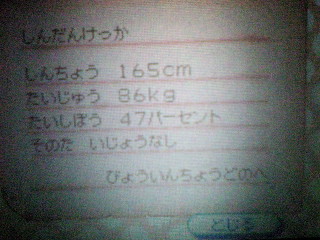 しんだんけっか
しんちょう 165cm
たいじゅう 86kg
たいしぼう 47パーセント
そのた いじょうなし
びょういんちょうどのへ
とじる